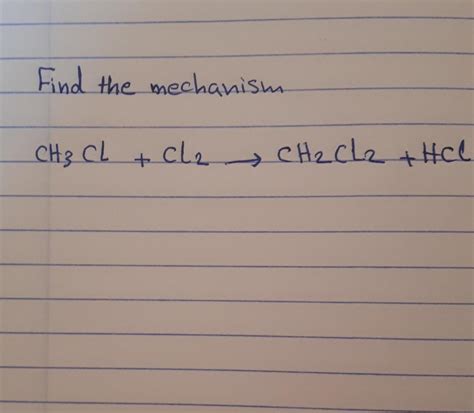 Find the mechanism
CH3 Cl + Cl2 → CH2Cl2 + HCl